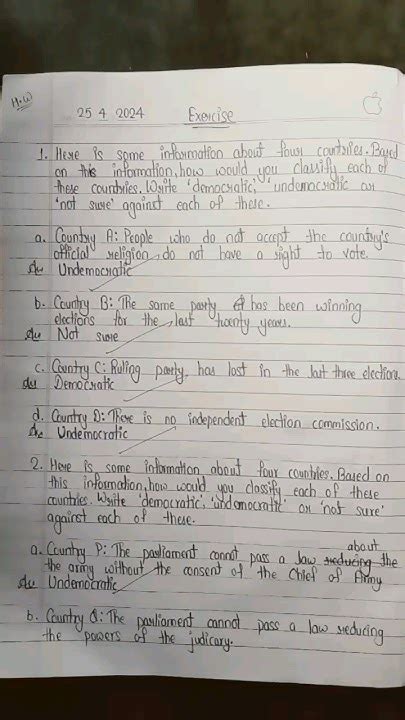 H.W
25 4 2024 Exercise
1. Here is some information about four countries. Based
on this information, how would you classify each of
these countries. Write 'democratic,' 'undemocratic or
'not sure' against each of these.
a. Country A: People who do not accept the country's
official religion do not have a right to vote.
Undemocratic
b. Country B: The same party has been winning
elections for the last twenty years.
Not sure
c. Country C: Ruling party has lost in the last three elections.
Democratic
d. Country D: There is no independent election commission.
Undemocratic
2. Here is some information about four countries. Based on
this information, how would you classify each of these
countries. Write 'democratic', 'undemocratic' or 'not sure'
against each of these.
about
a. Country P: The parliament cannot pass a law reducing the
the army without the consent of the Chief of Army
Undemocratic
b. Country Q: The parliament cannot pass a law reducing
the powers of the judicary.